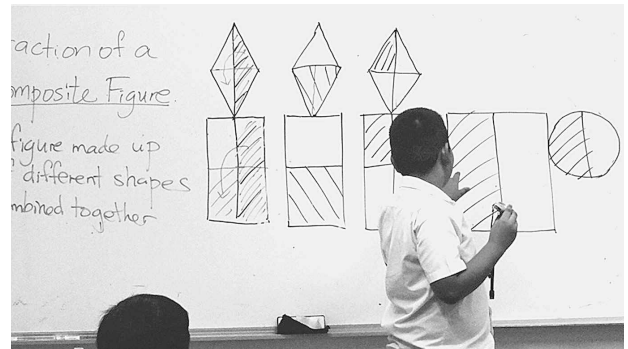 raction of a
omposite Figure.
figure made up
different shapes
mbined together